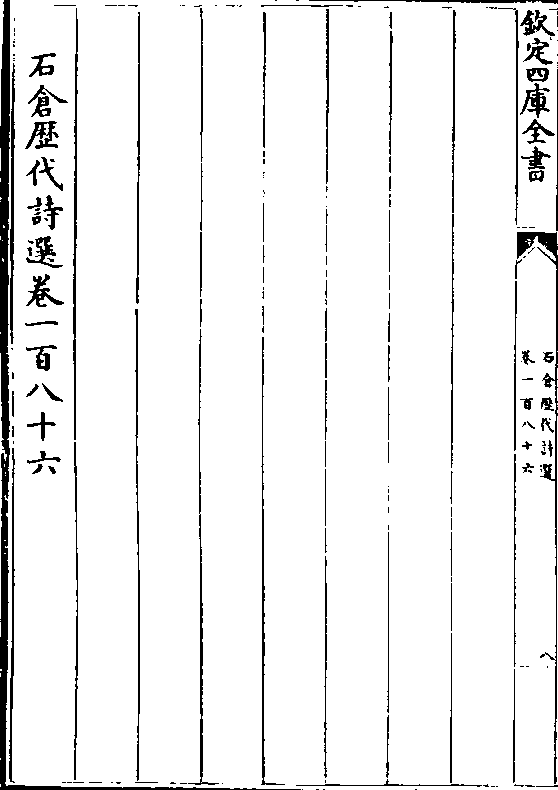 欽定四庫全書
石倉歴代詩選
卷一百八十六
八
石倉歴代詩選卷一百八十六